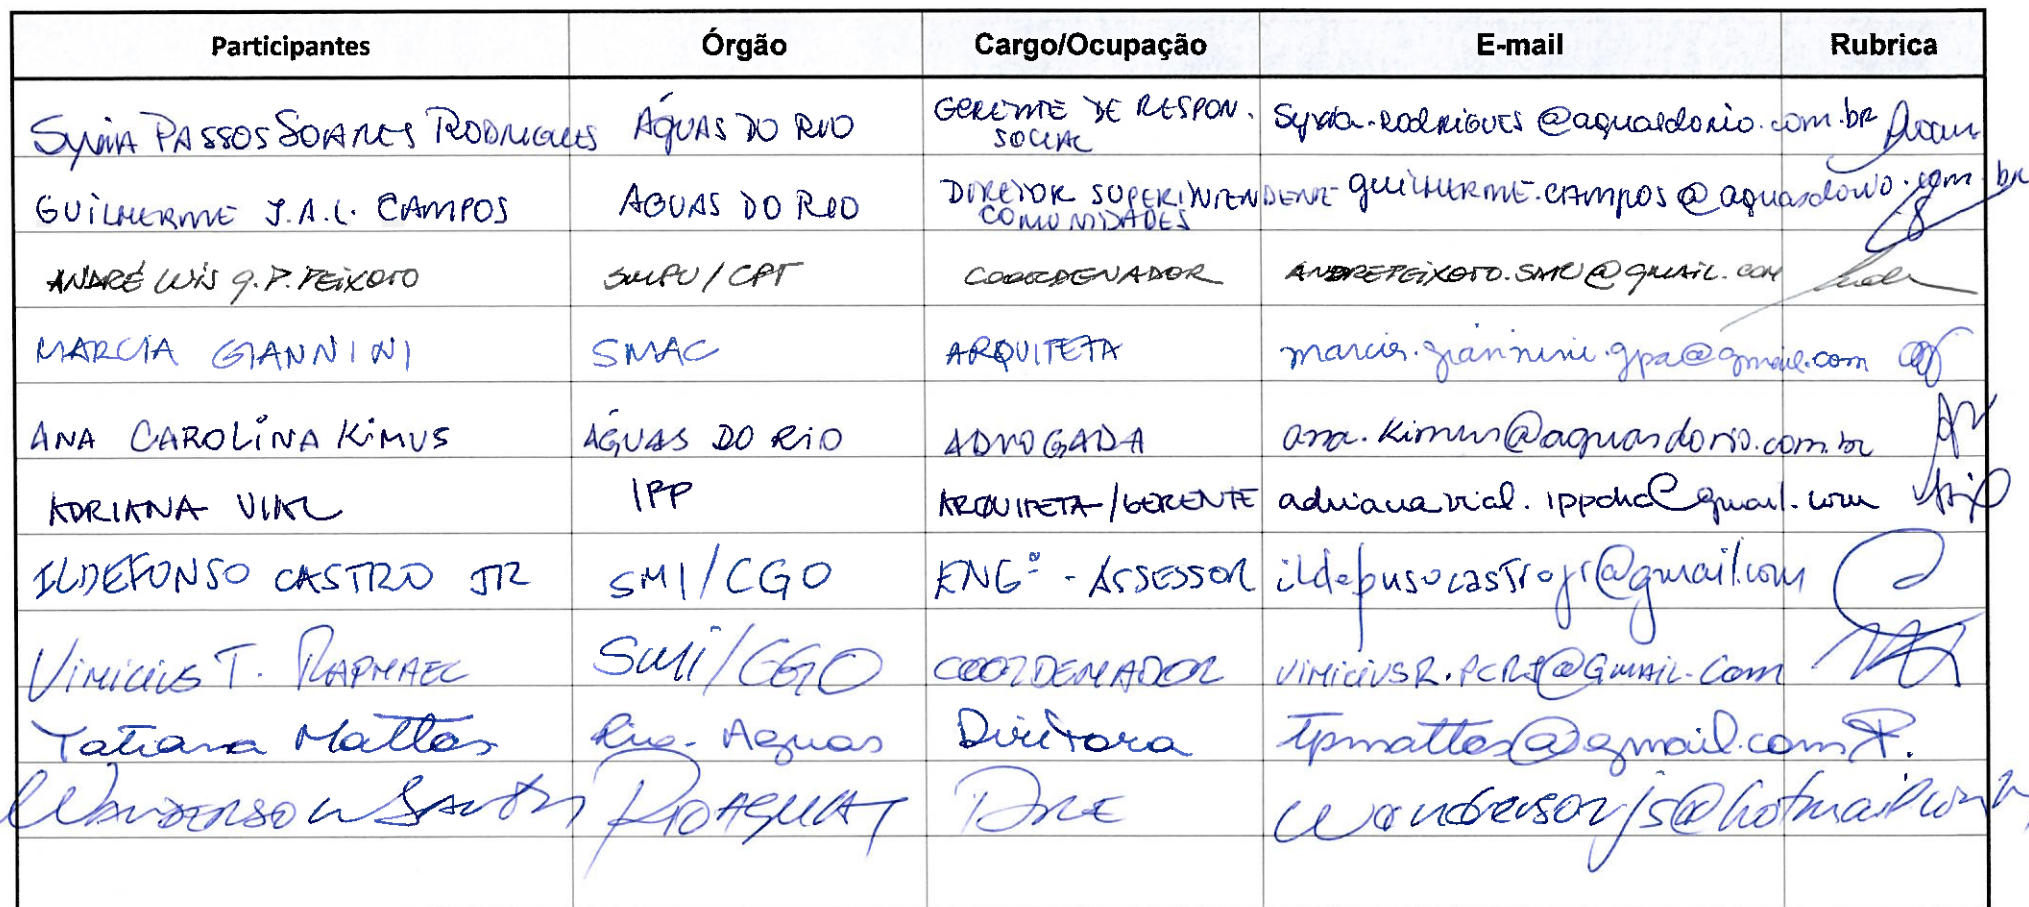 Participantes Órgão Cargo/Ocupação E-mail Rubrica
PASSOS SOARES RODRIGUES ÁGUAS DO RIO GERENTE DE RESPON. SOCIAL
GUILHERME J.A.L. CAMPOS AGUAS DO RIO DIRETOR SUPERINTENDENTE COMUNIDADES guilherme.campos@aguasdorio.com.br
ANDRÉ LUÍS G.P. PEIXOTO SMPU/CPT COORDENADOR ANDREPEIXOTO.SMU@GMAIL.COM
MARCIA GIANNINI SMAC ARQUITETA marcia.giannini.gpa@gmail.com
ANA CAROLINA KIMUS ÁGUAS DO RIO ADVOGADA ana.kimus@aguasdorio.com.br
ADRIANA VIAL IPP ARQUITETA/GERENTE adrianavial.ippdhc@gmail.com
ILDEFONSO CASTRO JR SMI/CGO ENGº - ASSESSOR ildefonsocastrojr@gmail.com
VINICIUS T. RAPHAEL SMI/CGO COORDENADOR VINICIUSR.PCRJ@GMAIL.COM
Tatiana Mattos Rio-Aguas Diretora tpmattos@gmail.com
WANDERSON SANTOS RIOAGUAS wandersonjs@hotmail.com